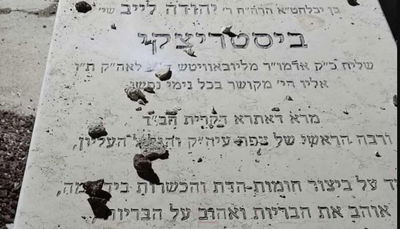 בן יבלחט"א הרה"ח ר' יהודה לייב שי'
ביסטריצקי
שליח כ"ק אדמו"ר מליובאוויטש לאה"ק ת"ו
אליו הי' מקושר בכל נימי נפשו
מרא דאתרא בקרית חב"ד
ורבה הראשי של צפת עיה"ק העליון,
על ביצור חומות הדת והכשרות
אוהב את הבריות ואהוב על הבריות